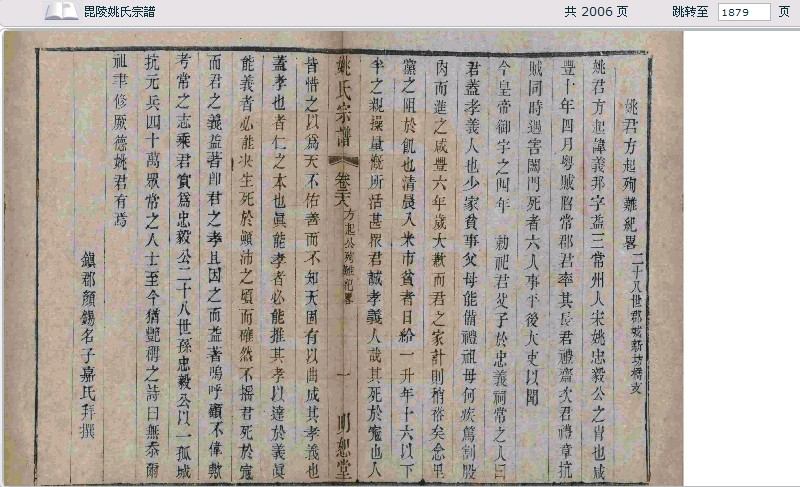 毘陵姚氏宗譜
共 2006 页
跳转至 1879 页
姚君方起殉難紀畧 二十八世郡城新坊橋支
姚君方起諱義那字益三常州人宋姚忠毅公之冑也咸
豐十年四月粵賊陷常郡君率其長君禮齋次君禮章抗
賊同時遇害闔門死者六人事平後大吏以聞
今皇帝御宇之四年 勅祀君父子於忠義祠常之人曰
君蓋孝義人也少家貧事父母能備禮祖母何疾篤割股
肉而進之咸豐六年歲大歉而君之家計則稍裕矣念里
黨之阻於飢也清晨入米市貧者日給一升年十六以下
半之親操量概所活甚眾君誠孝義人哉其死於寇也人
姚氏宗譜 卷二六 方起公殉難紀畧 一 明恕堂
皆惜之以爲天不佑善而不知天固有以曲成其孝義也
蓋孝也者仁之本也眞能孝者必能推其孝以達於義眞
能義者必能決生死於顛沛之頃而確然不搖君死於寇
而君之義益著卽君之孝且因之而益著嗚呼顧不偉歟
考常之志乘君實爲忠毅公二十八世孫忠毅公以一孤城
抗元兵四十萬眾常之人士至今猶豔稱之詩曰無忝爾
祖聿修厥德姚君有焉
鎮郡顏錫名子嘉氏拜撰